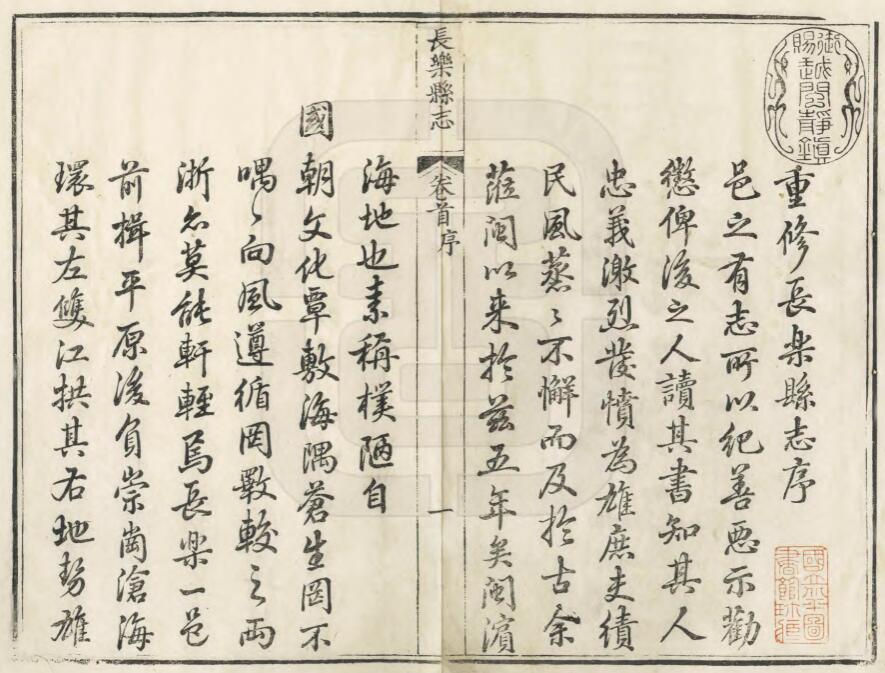 御賜越閩靜鎮
重修長樂縣志序
邑之有志所以紀善惡示勸
懲俾後之人讀其書知其人
忠義激烈發憤為雄庶吏績
民風蒸〻不懈而及於古余
蒞閩以来於茲五年矣閩濱
長樂縣志
卷首序
一
海地也素稱樸陋自
國朝文化覃敷海隅蒼生罔不
喁〻向風遵循罔斁較之兩
浙名莫能軒輊焉長樂一邑
前揖平原後負崇崗滄海
環其左雙江拱其右地勢雄
國立北平圖
書館收藏